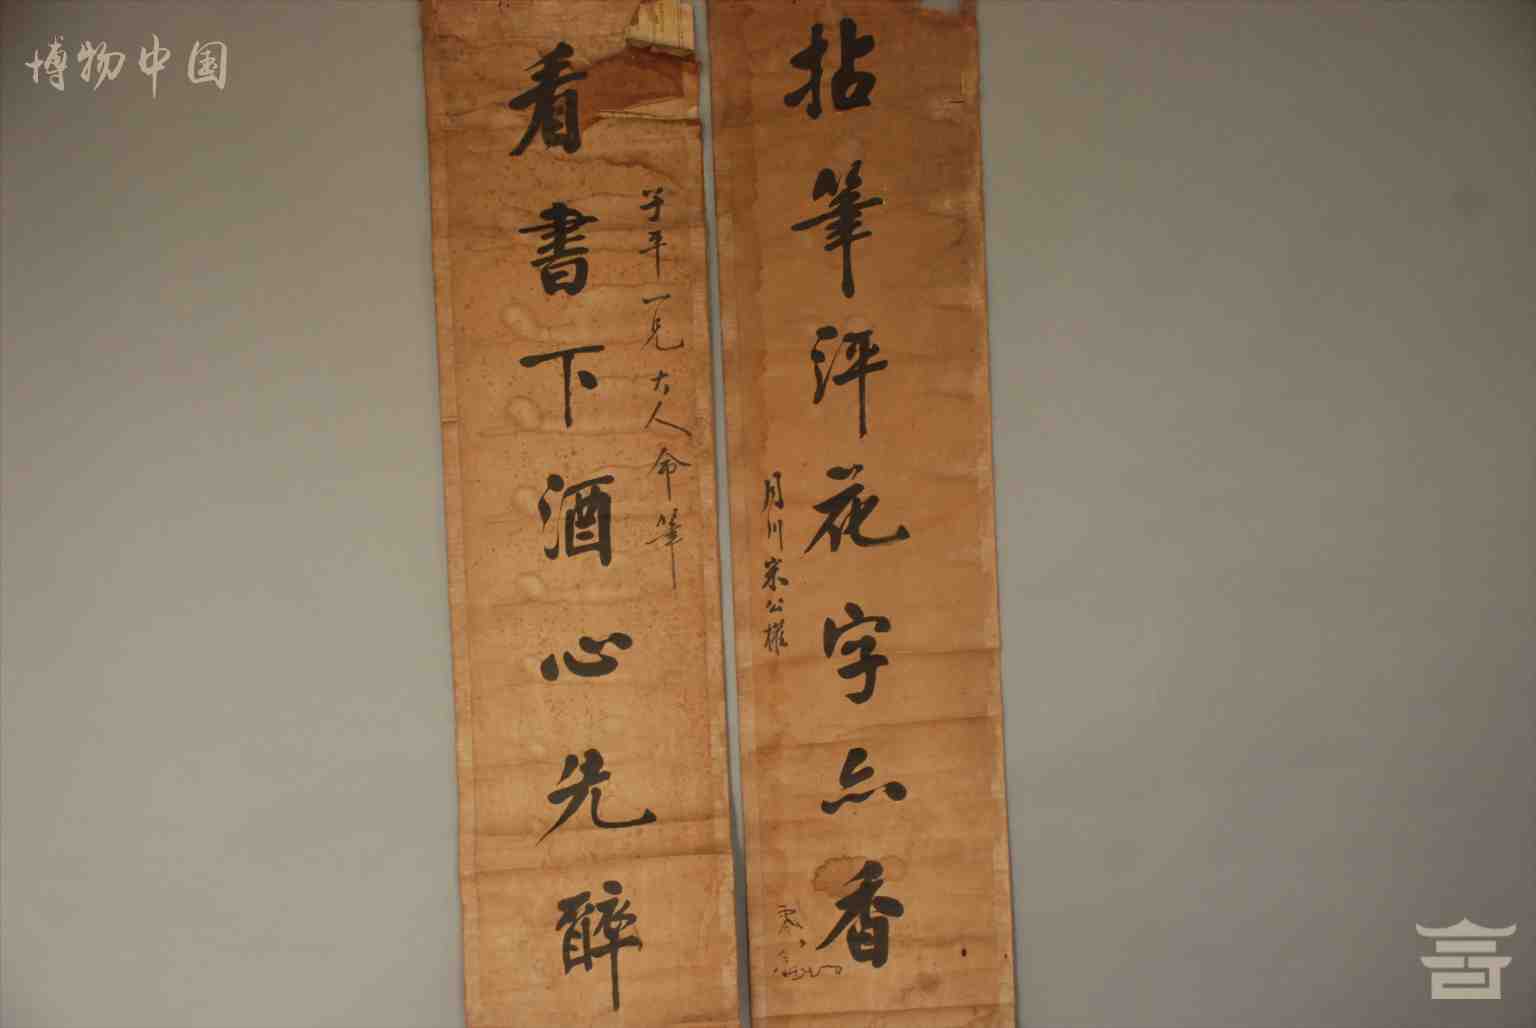 博物中国
拈筆評花字亦香
月川宗公權
看書下酒心先醉
子平一兄大人命筆